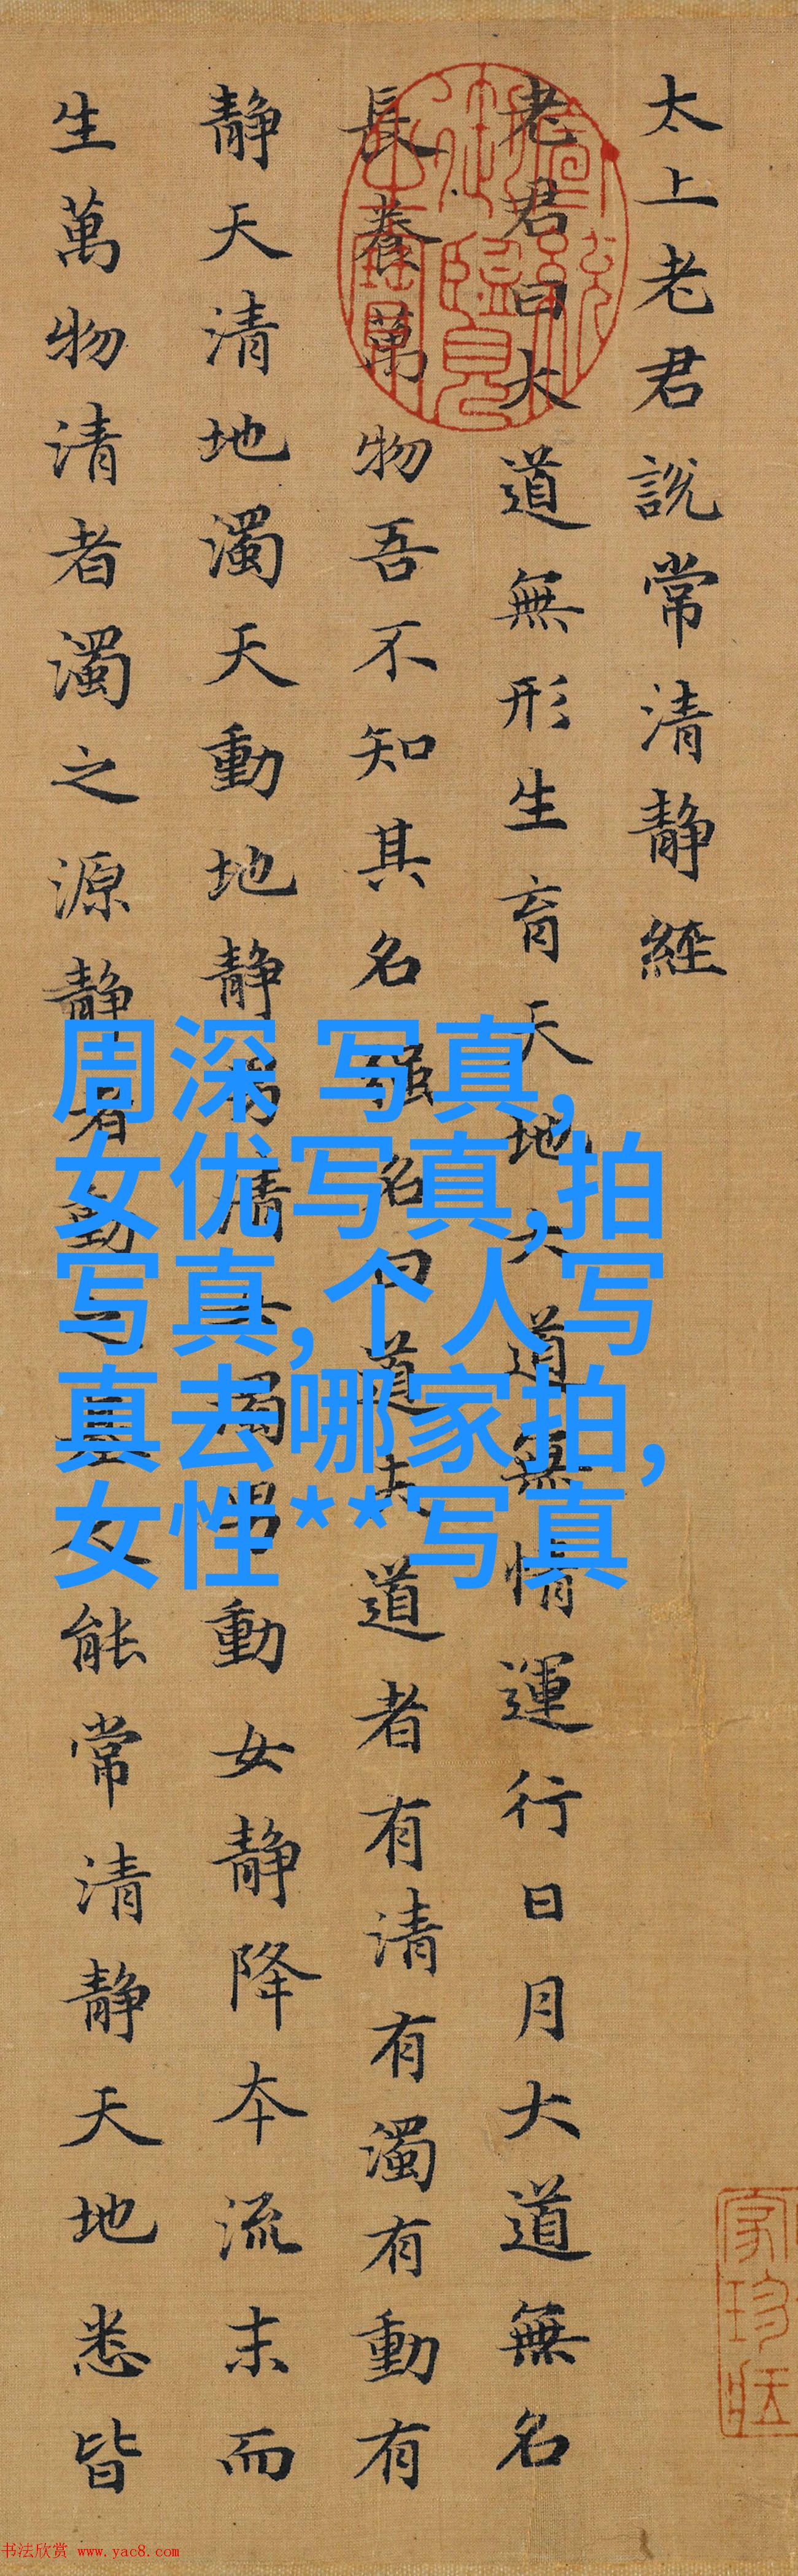 太上老君説常清静經
老君曰大道無形生育天地大道無情運行日月大道無名
長養萬物吾不知其名强名曰道夫道者有清有濁有動有
静天清地濁天動地静男清女濁男動女静降本流末而
生萬物清者濁之源静者動之基人能常清静天地悉皆
周深 写真,
女优写真,拍
写真,个人写
真去哪家拍,
女性**写真
書法欣赏 www.yac8.com